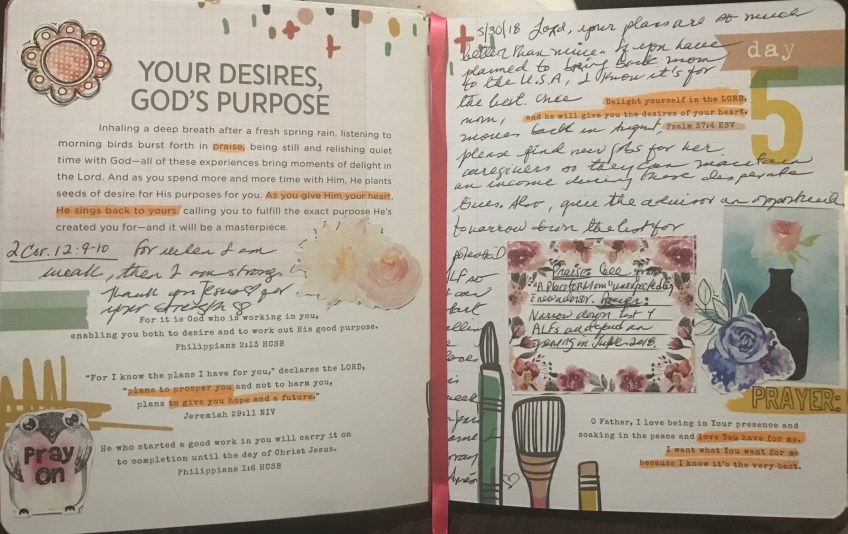 YOUR DESIRES,
GOD'S PURPOSE
Inhaling a deep breath after a fresh spring rain, listening to
morning birds burst forth in praise, being still and relishing quiet
time with God—all of these experiences bring moments of delight in
the Lord. And as you spend more and more time with Him, He plants
seeds of desire for His purposes for you. As you give Him your heart,
He sings back to yours, calling you to fulfill the exact purpose He's
created you for—and it will be a masterpiece.
2 Cor. 12:9-10 For when I am
weak, then I am strong.
Thank you Jesus for
your strength
For it is God who is working in you,
enabling you both to desire and to work out His good purpose.
Philippians 2:13 HCSB
"For I know the plans I have for you," declares the LORD,
"plans to prosper you and not to harm you,
plans to give you hope and a future."
Jeremiah 29:11 NIV
He who started a good work in you will carry it on
to completion until the day of Christ Jesus.
Philippians 1:6 HCSB
Pray
On
5/30/18 Lord, your plans are so much
better than mine. If you have
planned to bring back mom
to the U.S.A, I know it's for
the best. Once
mom,
moves back in August,
please find new jobs for her
caregivers so they can maintain
an income during these desperate
times. Also, give the advisor an opportunity
to narrow down the list for
day
5
Delight yourself in the LORD,
and he will give you the desires of your heart.
Psalm 37:4 ESV
Praises: Lee from
"A Place for Mom" unexpectedly
is new advisor. Prayer:
Narrow down list of
ALFs and find an
opening in June 2018.
PRAYER:
O Father, I love being in Your presence and
soaking in the peace and love You have for me.
I want what You want for me
because I know it's the very best.